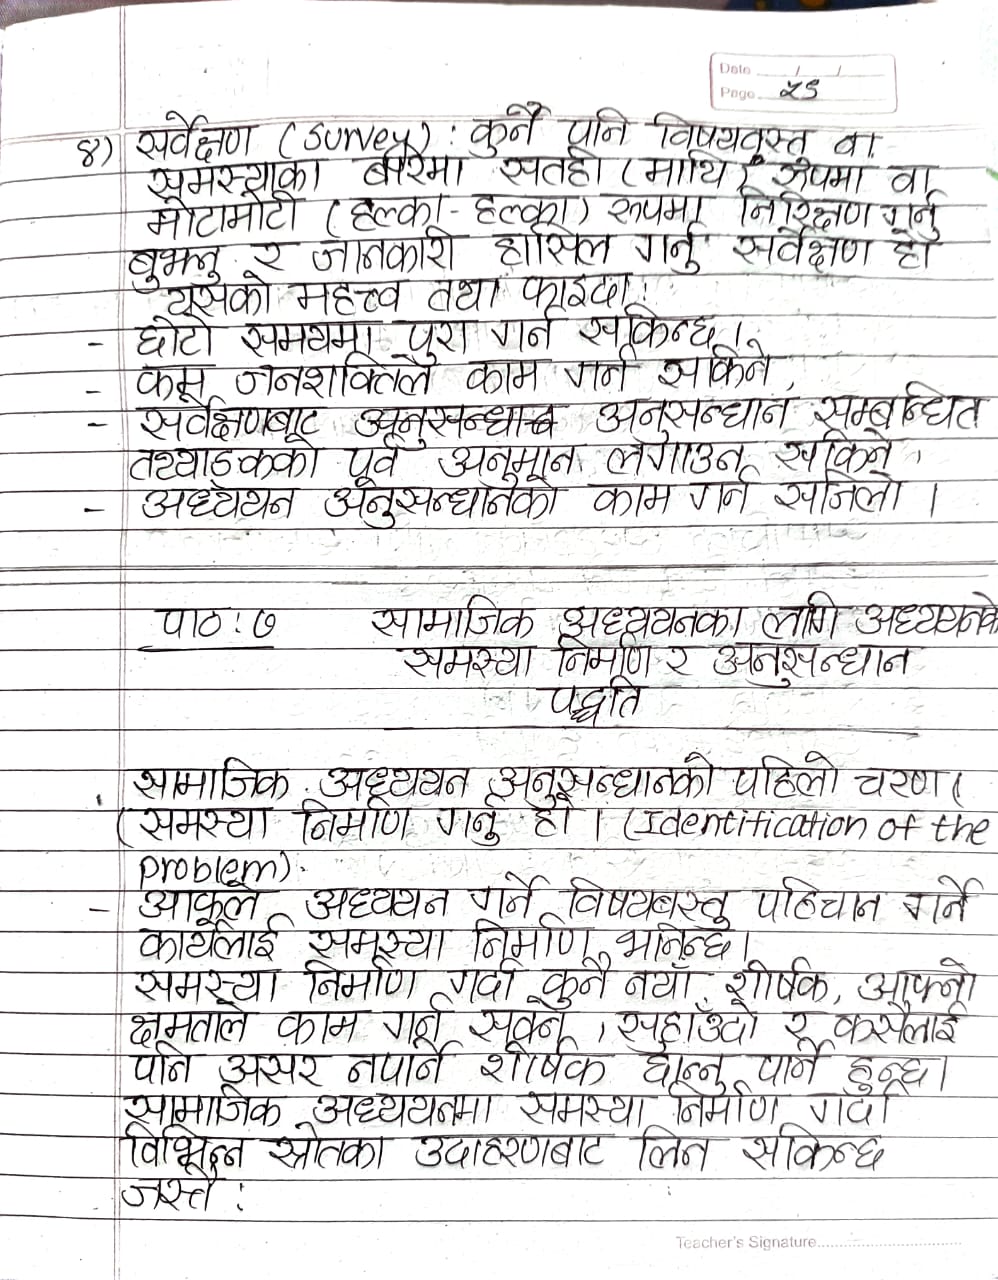 Date / /
Page २९
४) सर्वेक्षण (survey): कुनै पनि विषयवस्तु वा
समस्याका बारेमा सतही (माथि) रुपमा वा
मोटामोटी (हल्का-हल्का) रूपमा निरिक्षण गर्नु
बुझ्नु र जानकारी हासिल गर्नु सर्वेक्षण हो
यसको महत्त्व तथा फाइदा:
- छोटो समयमा पुरा गर्न सकिन्छ।
- कम जनशक्तिले काम गर्न सकिने,
- सर्वेक्षणबाट अनुसन्धान अनुसन्धान सम्बन्धित
तथ्याङ्कको पूर्व अनुमान लगाउन सकिने,
- अध्ययन अनुसन्धानको काम गर्न सजिलो।
पाठ: ७ सामाजिक अध्ययनका लागि अध्ययनके
समस्या निर्माण र अनुसन्धान
पद्धति
सामाजिक अध्ययन अनुसन्धानको पहिलो चरण (
(समस्या निर्माण गर्नु हो। (Identification of the
problem).
- आफूले अध्ययन गर्ने विषयबस्तु पहिचान गर्ने
कार्यलाई समस्या निर्माण भनिन्छ।
समस्या निर्माण गर्दा कुनै नयाँ शीर्षक, आफ्नो
क्षमताले काम गर्न सक्ने, सुहाउँदो र कसैलाई
पनि असर नपार्ने शीर्षक छान्नु पार्ने हुन्छ।
सामाजिक अध्ययनमा समस्या निर्माण गर्दा
विभिन्न स्रोतका उदाहरणबाट लिन सकिन्छ
जस्तै:
Teacher's Signature